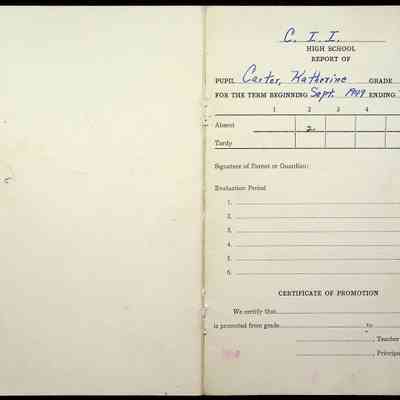 C. I. I.
HIGH SCHOOL
REPORT OF
PUPIL Carter, Katherine GRADE
FOR THE TERM BEGINNING Sept. 1949 ENDING
1 2 3 4
Absent 2
Tardy
Signature of Parent or Guardian:
Evaluation Period
1.
2.
3.
4.
5.
6.
CERTIFICATE OF PROMOTION
We certify that
is promoted from grade to
, Teacher
, Principa